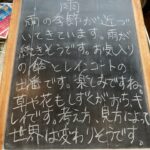 雨
雨の季節が近づ
いてきています。雨が
続きそうです。お気入り
の傘とレインコートの
出番です。楽しみですね。
草や花もしずくがおうき
しれです。考え、見方よって
世界は変わりそうです。